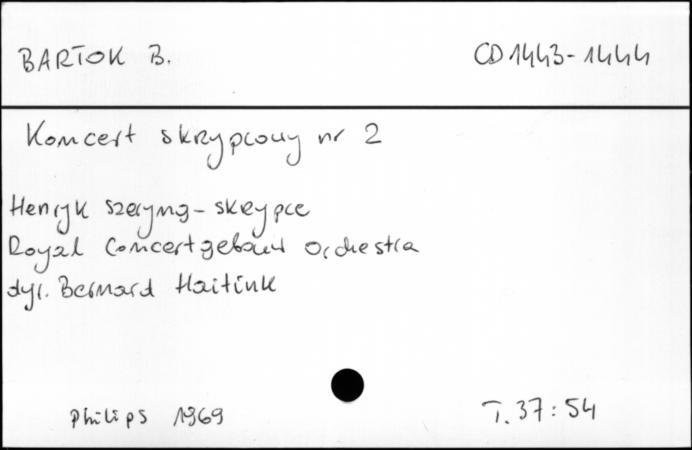 BARTOK B. CD 1443-1444
Koncert skrzypcowy nr 2
Henryk Szeryng - skrzypce
Royal Concertgebouw Orchestra
dyr. Bernard Haitink
Philips 1969 T. 37:54